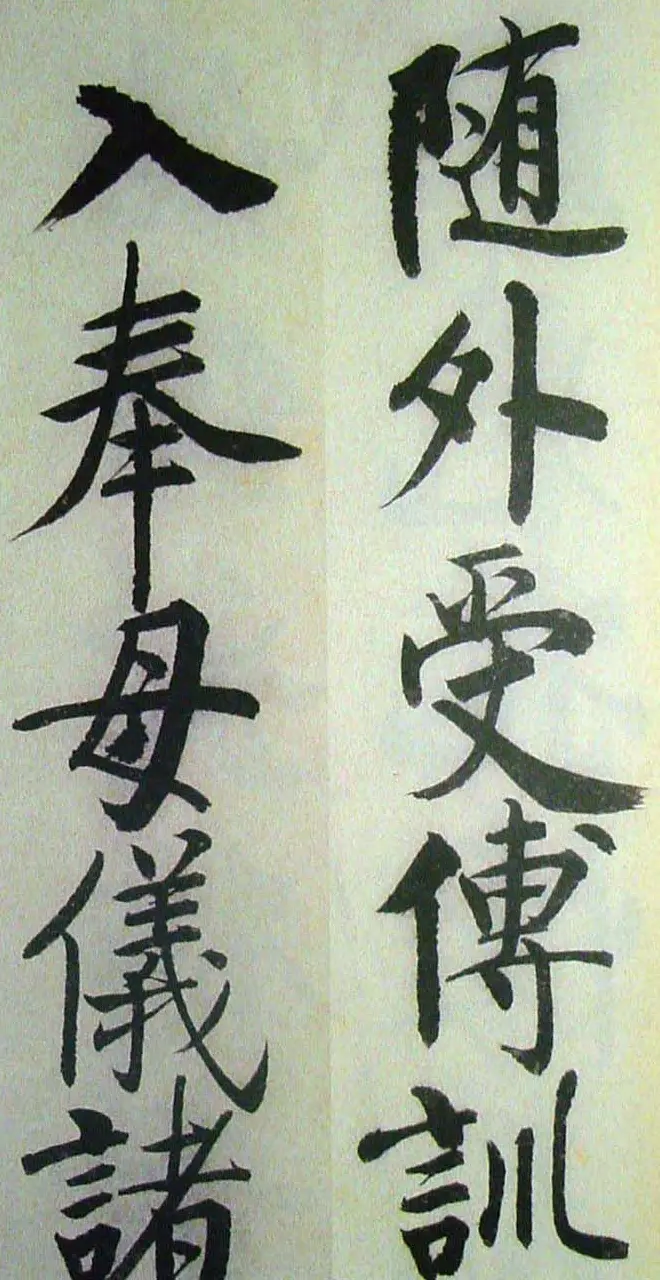 随外受傅訓
入奉母儀諸